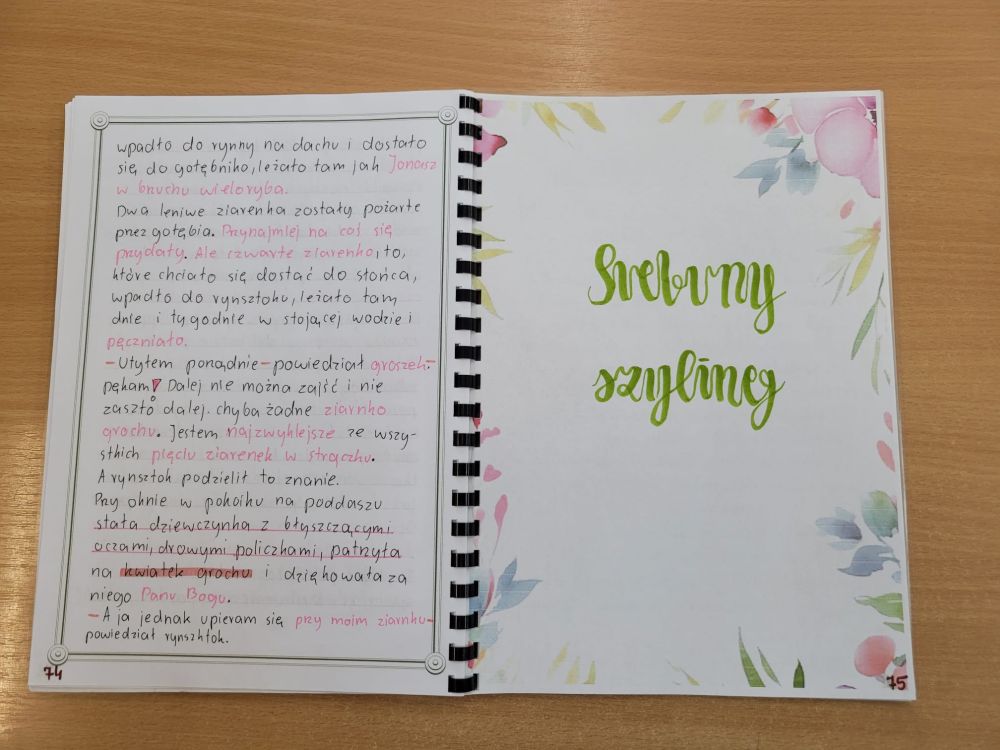 wpadło do rynny na dachu i dostało
się do gołębnika, leżało tam jak Jonasz
w bruchu wieloryba.
Dwa leniwe ziarenka zostały pożarte
przez gołębia. Przynajmlej na coś się
przydały. Ale czwarte ziarenko, to,
które chciało się dostać do słońca,
wpadło do rynsztoku, leżało tam
dnie i tygodnie w stojącej wodzie i
pęczniało.
- Utyłem porządnie - powiedział groszek. -
pękam! Dalej nie można zajść i nie
zaszło dalej. chyba żadne ziarnko
grochu. Jestem najzwyklejsze ze wszy-
stkich pięciu ziarenek w strączku.
A rynsztok podzielił to znanie.
Przy oknie w pokoiku na poddaszu
stała dziewczynka z błyszczącymi
oczami, zdrowymi policzkami, patrzyła
na kwiatek grochu i dziękowała za
niego Panu Bogu.
- A ja jednak upieram się przy moim ziarnku -
powiedział rynsztok.
74
Srebrny
szyling
75